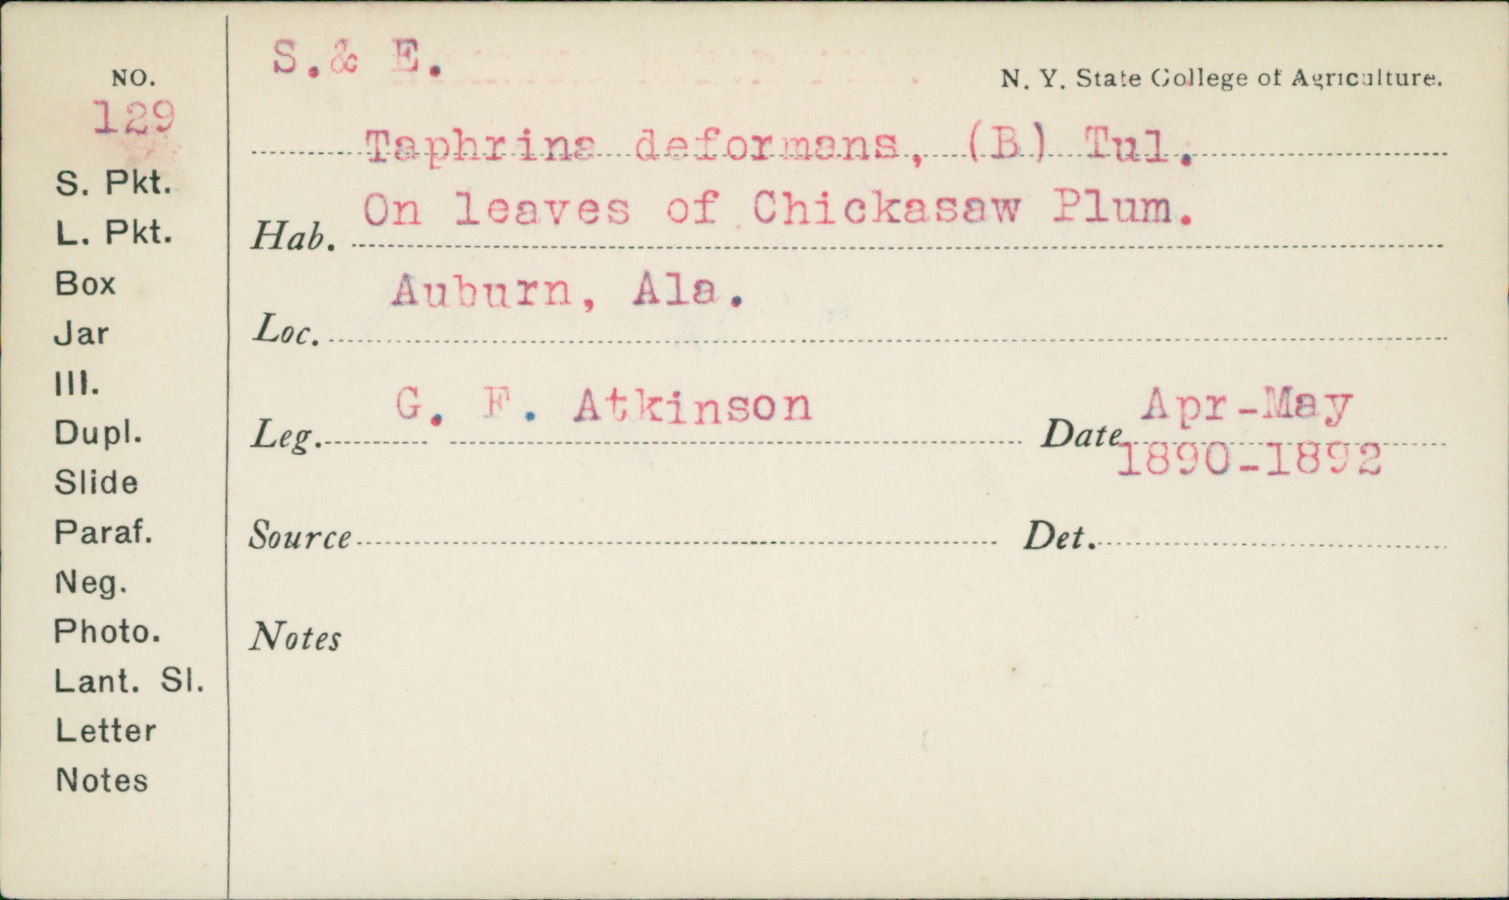 NO.
129
S. Pkt.
L. Pkt.
Box
Jar
Ill.
Dupl.
Slide
Paraf.
Neg.
Photo.
Lant. Sl.
Letter
Notes
S. & E.
N. Y. State College of Agriculture.
Taphrina deformans, (B) Tul.
Hab. On leaves of Chickasaw Plum.
Loc. Auburn, Ala.
Leg. G. F. Atkinson Date Apr-May
1890-1892
Source Det.
Notes